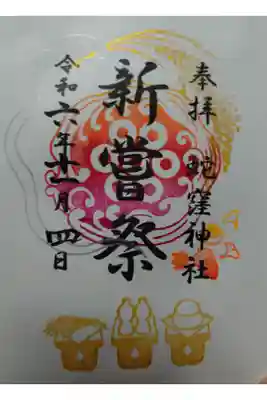 奉拝 蛇窪神社
新嘗祭
令和六年十一月四日